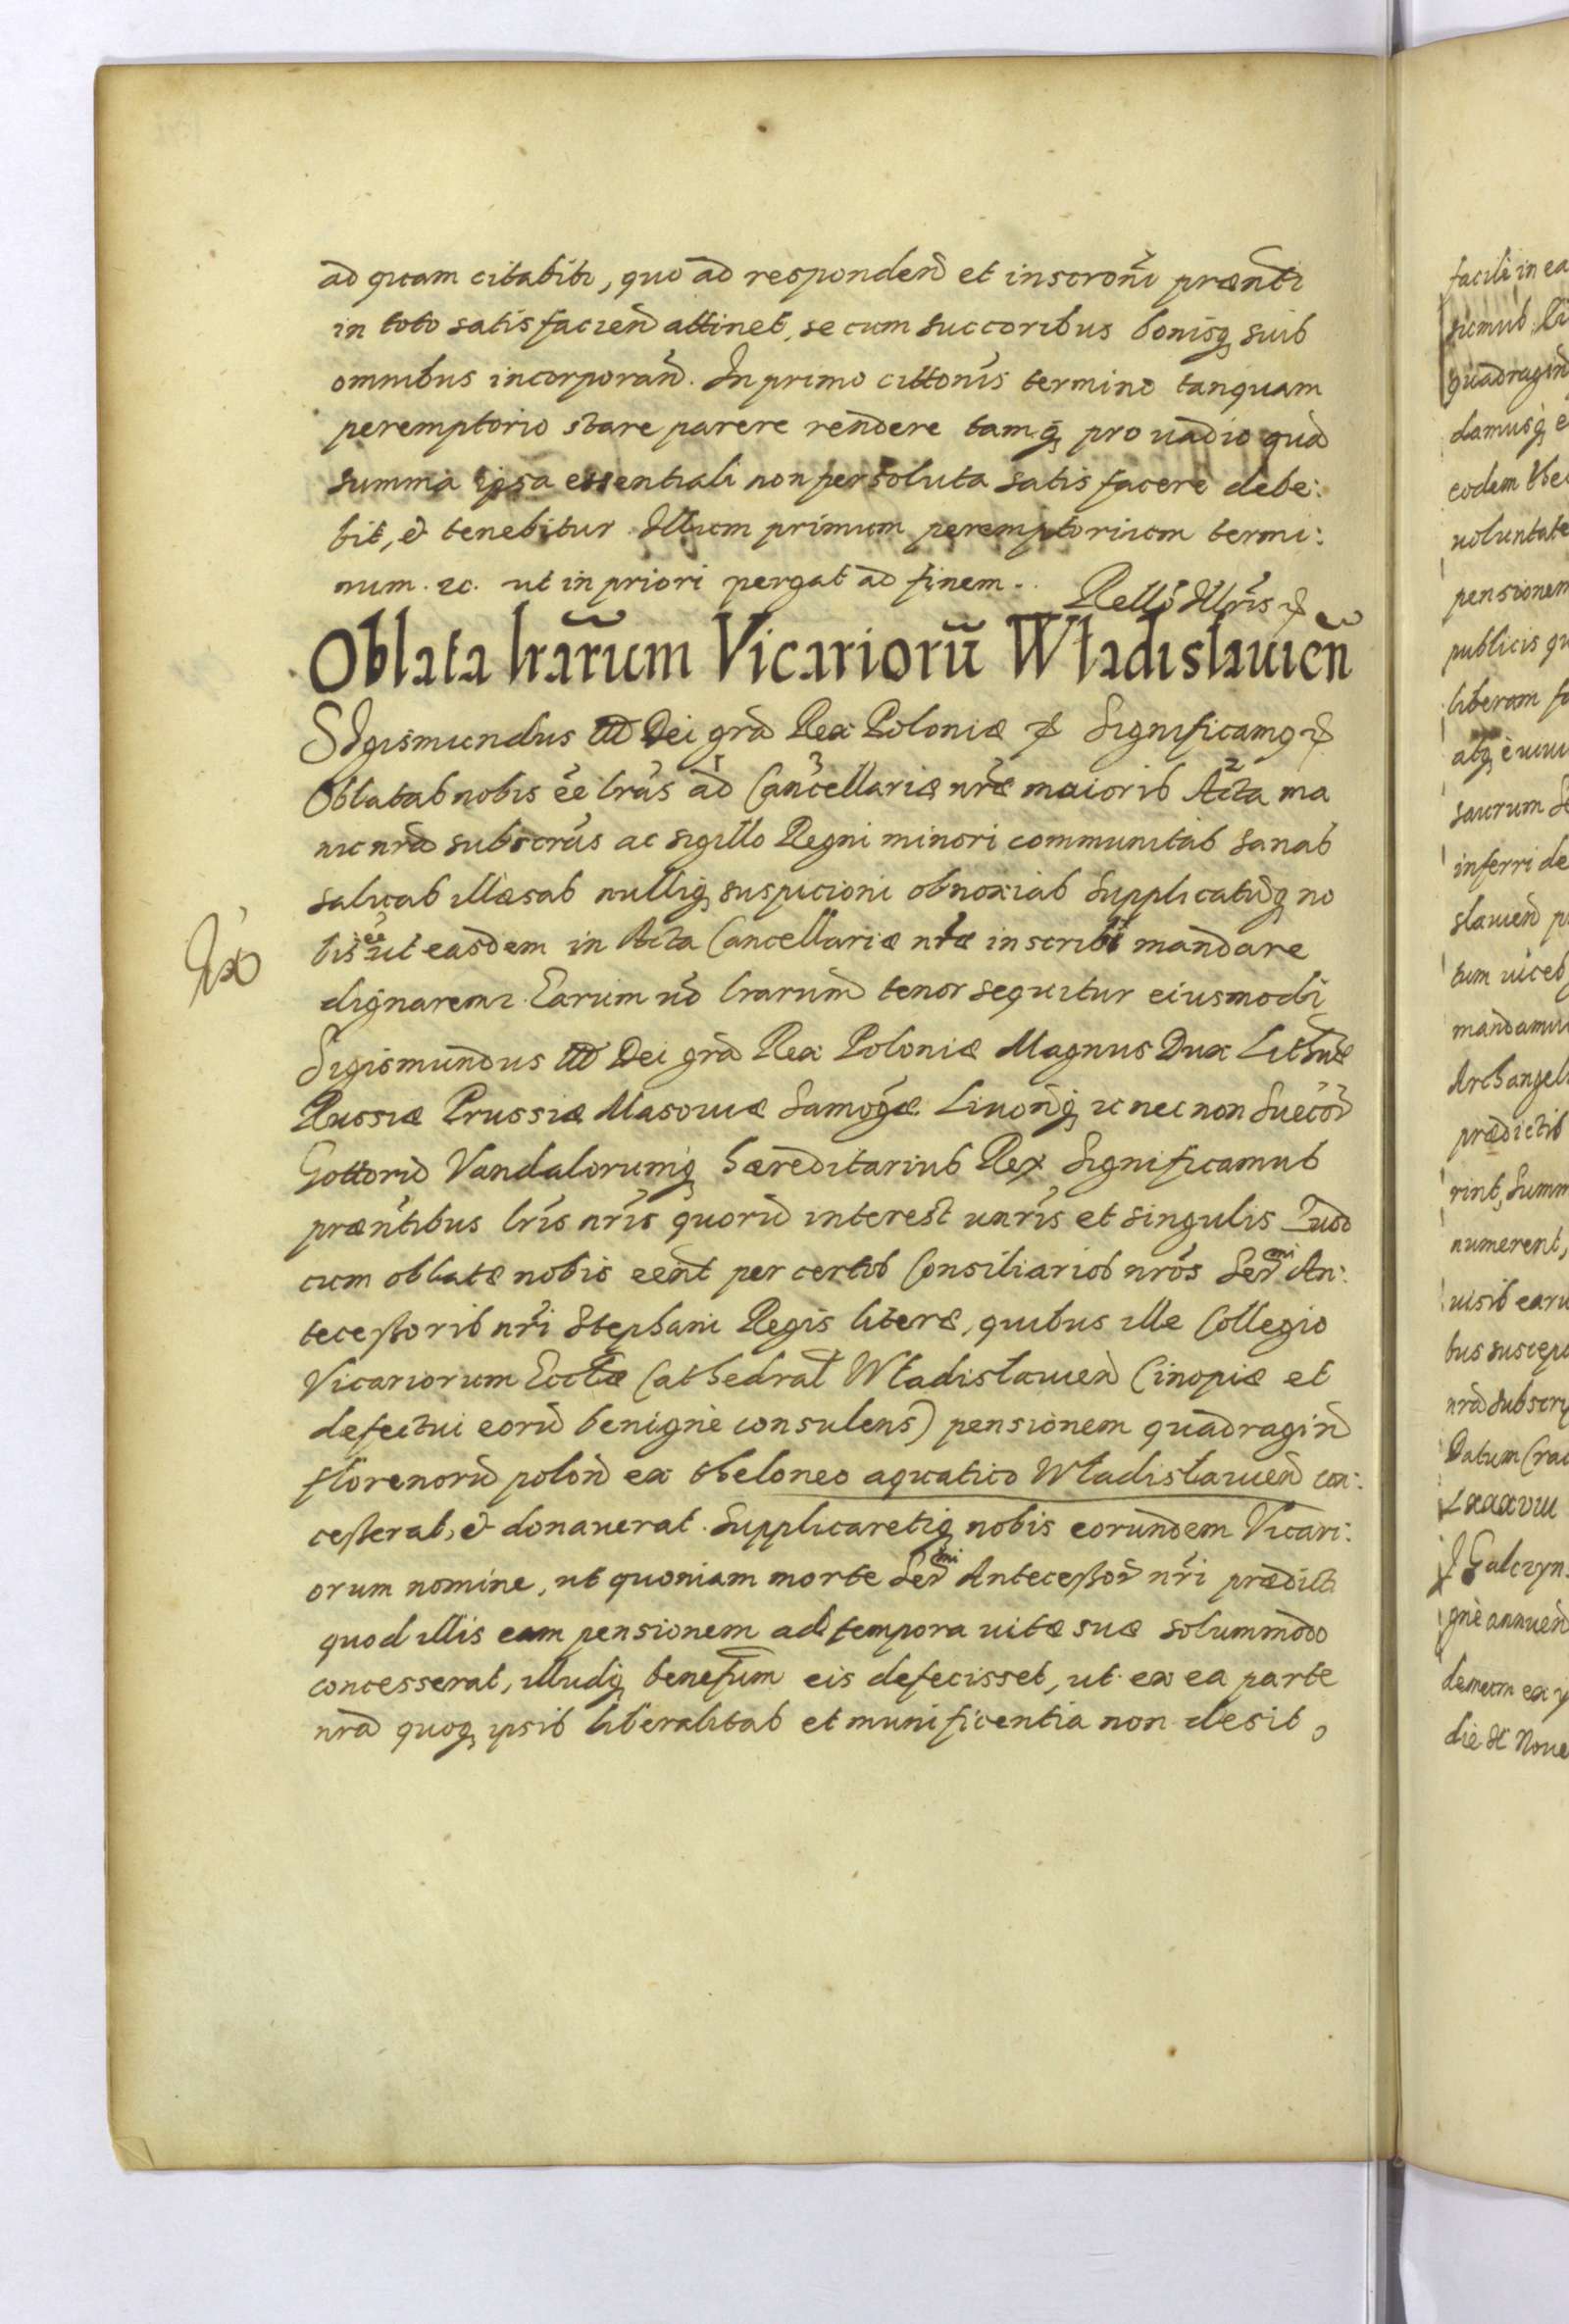 ad quam citabitr, quo ad respondend et inscroñi præñti
in toto satisfaciend attinet, se cum succoribus bonisq suis
omnibus incorporañ. In primo cittonis termino tanquam
peremptorio stare parere rendere tam q pro uadio quã
summa ipsa essentiali non persoluta satis facere debe:
bit, et tenebitur Illum primum peremptorium termi:
num. zc. ut in priori pergat ad finem.. Rello Illris &
Oblata lrarum Vicariorũ Władislauień
SIgismundus IIID Dei gra Rex Poloniæ & Significamq &
Oblatas nobis eé lras ad Cancellariæ nræ maioris Acta ma
nu nra subscras ac sigillo Regni minori communitas sanas
saluas illæsas nulliq suspicioni obnoxias Supplicatũq no
bis eé ut easdem in Acta Cancellariæ nræ inscribi mandare
dignaremr. Earum uo lrarum tenor sequitur eiusmodi
Sigismundus IIID Dei gra Rex Poloniæ Magnus Dux Lithuæ
Russiæ Prussiæ Masouiæ Samogæ Liuoñq zc nec non Suecor
Gottorũ Vandalorumq hæreditarius Rex Significamus
præñtibus lris nris quorũ interest unris et singulis Quod
cum oblatæ nobis eent per certos Consiliarios nros Ser mi An:
tecessoris nri Stephani Regis literæ, quibus ille Collegio
Vicariorum Ecclæ Cathedral Władislauień (inopiæ et
defectui eorũ benignè consulens) pensionem quadragiñ
florenorũ poloñ ex theloneo aquatico Władislauień con:
cesserat, et donauerat. Supplicaretq nobis eorundem Vicari:
orum nomine, ut quoniam morte Ser mi Antecessor nri prædicti
quod illis eam pensionem ad tempora uitæ suæ solummodo
concesserat, illudq benefum eis defecisset, ut ex ea parte
nra quoq ipsis liberalitas et munificentia non desit,
facili in ea
sumus
quadragin
damusq e
eodem the
uoluntate
pensionem
publicis qu
liberam fa
saurum
inferri de
slauień p
tum uices
mandamus
Archangel
prædictis
rint, Summ
numerent,
uisis earu
bus suscep
nra subscr
Datum Crac
LXXXVIII
J Galczyn
gnè annuen
demum ex
die IX Noue